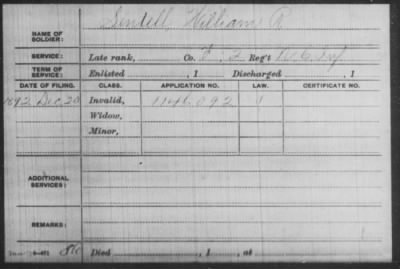 NAME OF SOLDIER: Sentell William R
SERVICE: Late rank, Co. F, 2 Reg't N.C. Inf
TERM OF SERVICE: Enlisted , 1 Discharged , 1
DATE OF FILING. CLASS. APPLICATION NO. LAW. CERTIFICATE NO.
1892 Dec. 20 Invalid, 1146.092
Widow,
Minor,
ADDITIONAL SERVICES:
REMARKS:
Died , 1 , at